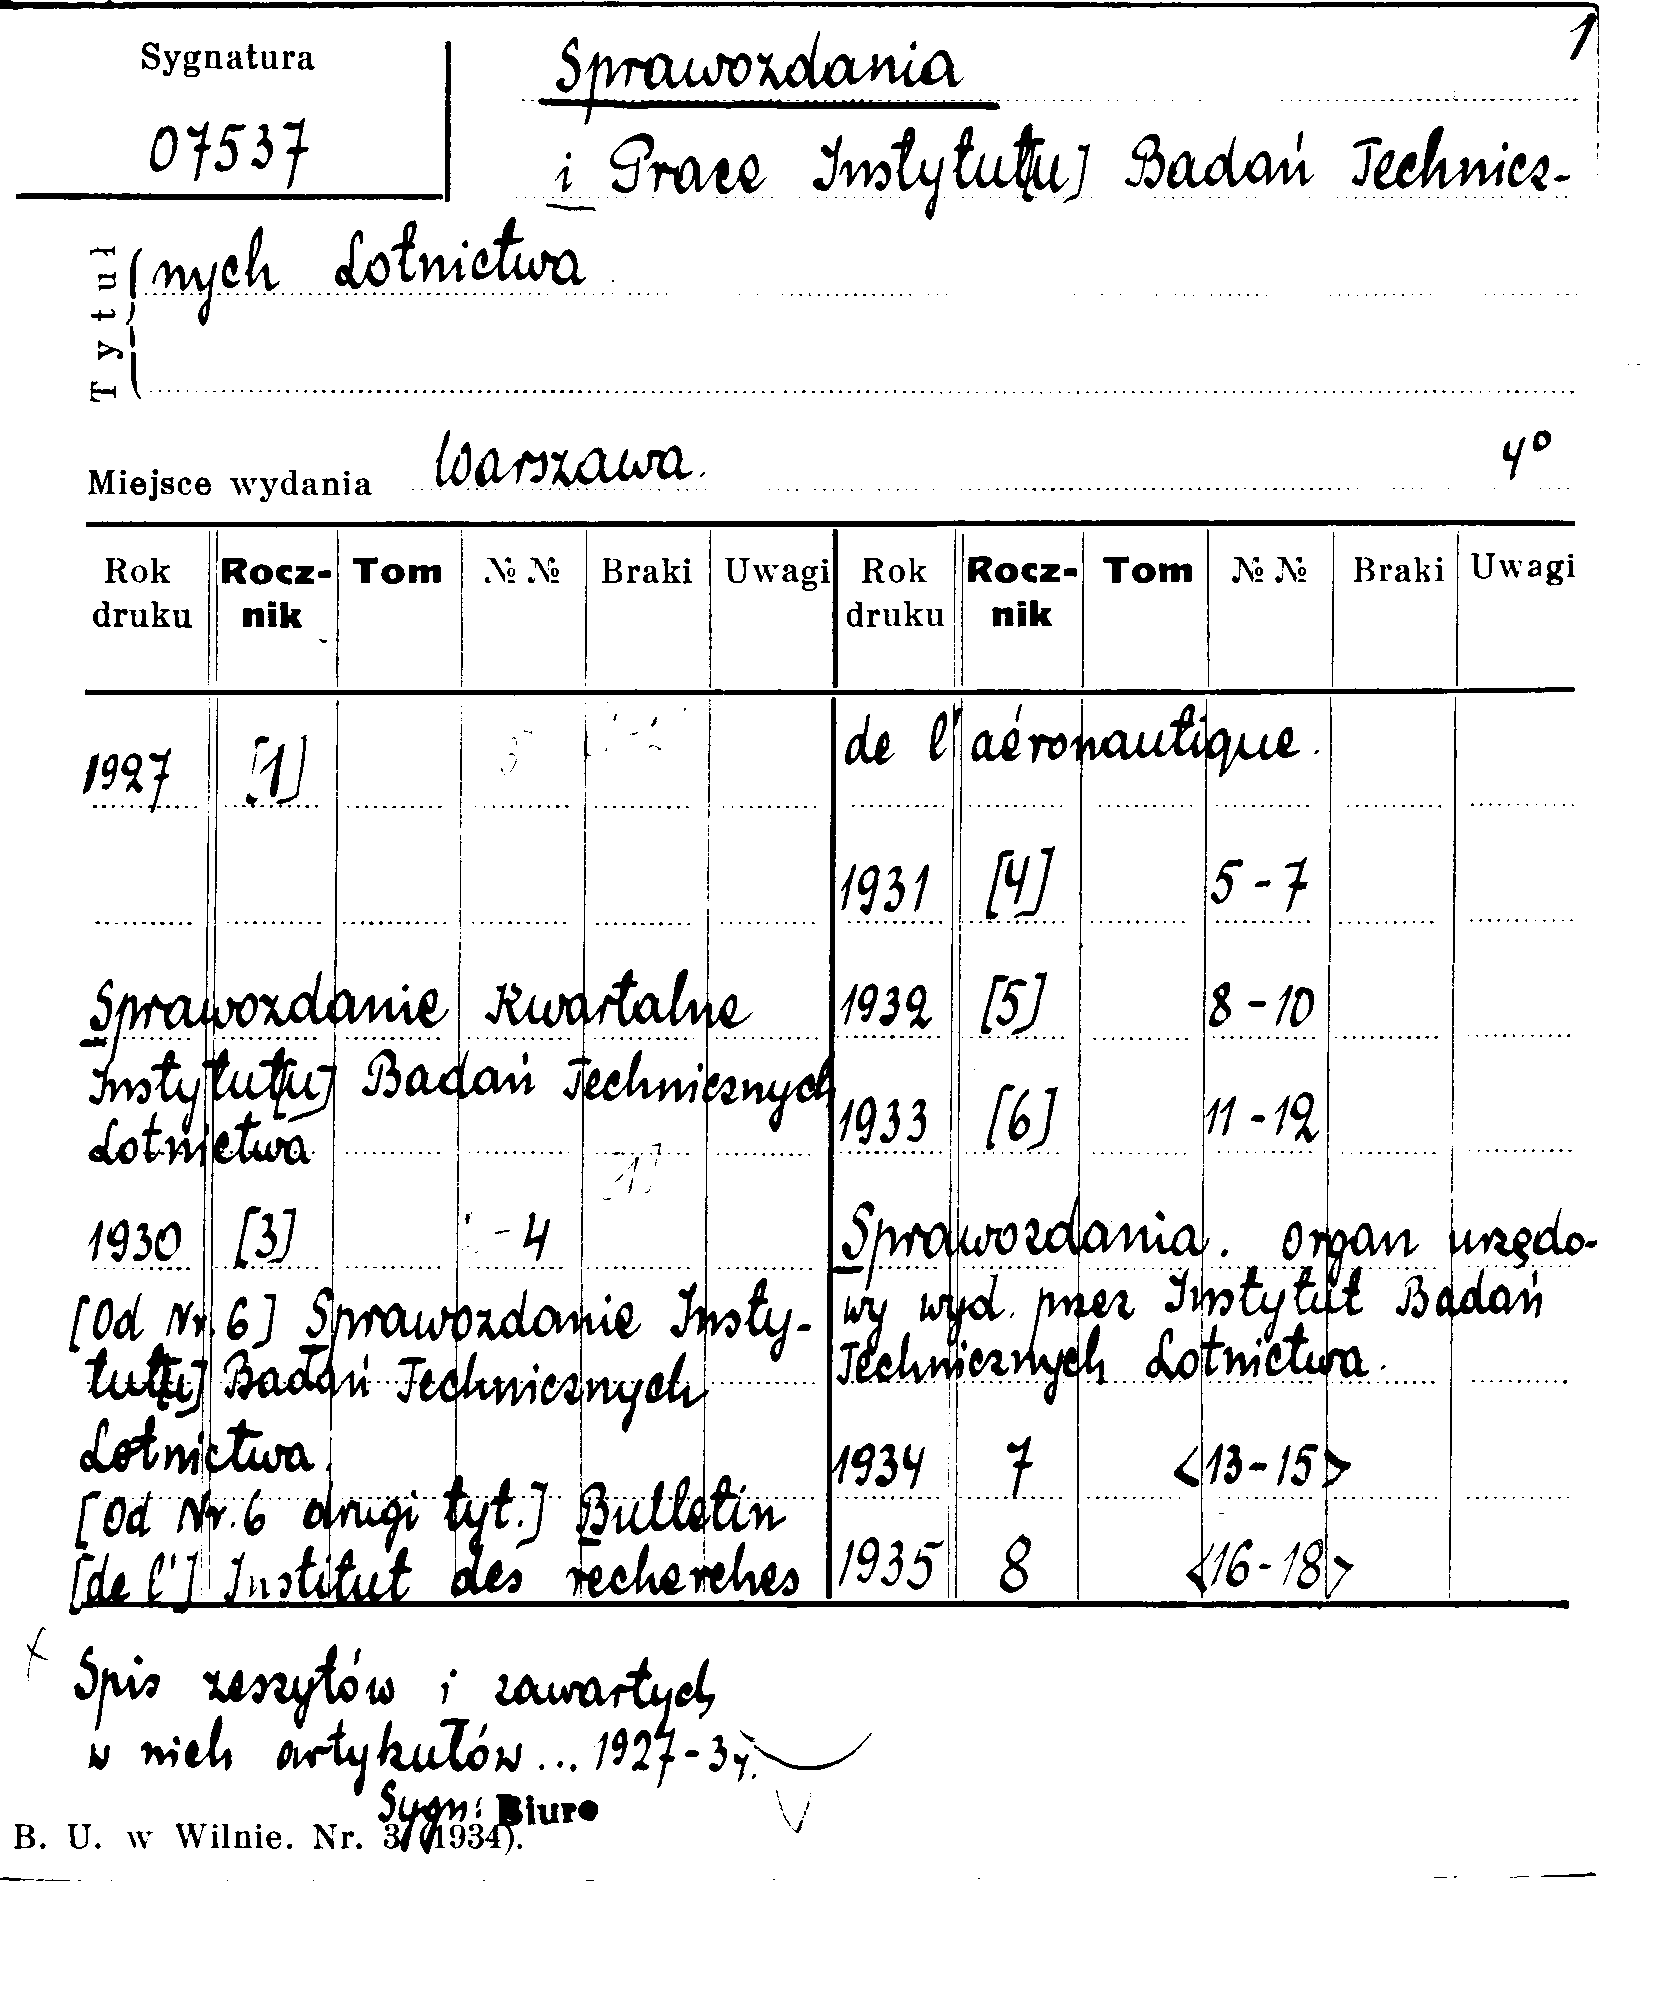 1
Sygnatura
07537
Sprawozdania
i Prace Instytut[u] Badań Technicz-
nych Lotnictwa
Tytuł
Miejsce wydania Warszawa. 4°
Rok druku Rocz-nik Tom № № Braki Uwagi Rok druku Rocz-nik Tom № № Braki Uwagi
1927 [1]
Sprawozdanie Kwartalne
Instytut[u] Badań Technicznych
Lotnictwa
1930 [3] -4
[Od Nr. 6] Sprawozdanie Insty-
tut[u] Badań Technicznych
Lotnictwa.
[Od Nr. 6 drugi tyt.] Bulletin
[de l'] Institut des recherches
de l'aéronautique.
1931 [4] 5-7
1932 [5] 8-10
1933 [6] 11-12
Sprawozdania. organ urzędo-
wy wyd. przez Instytut Badań
Technicznych Lotnictwa.
1934 7 <13-15>
1935 8 <16-18>
x Spis zeszytów i zawartych
w nich artykułów... 1927-34.
Sygn: Biuro
B. U. w Wilnie. Nr. 3 (1934).